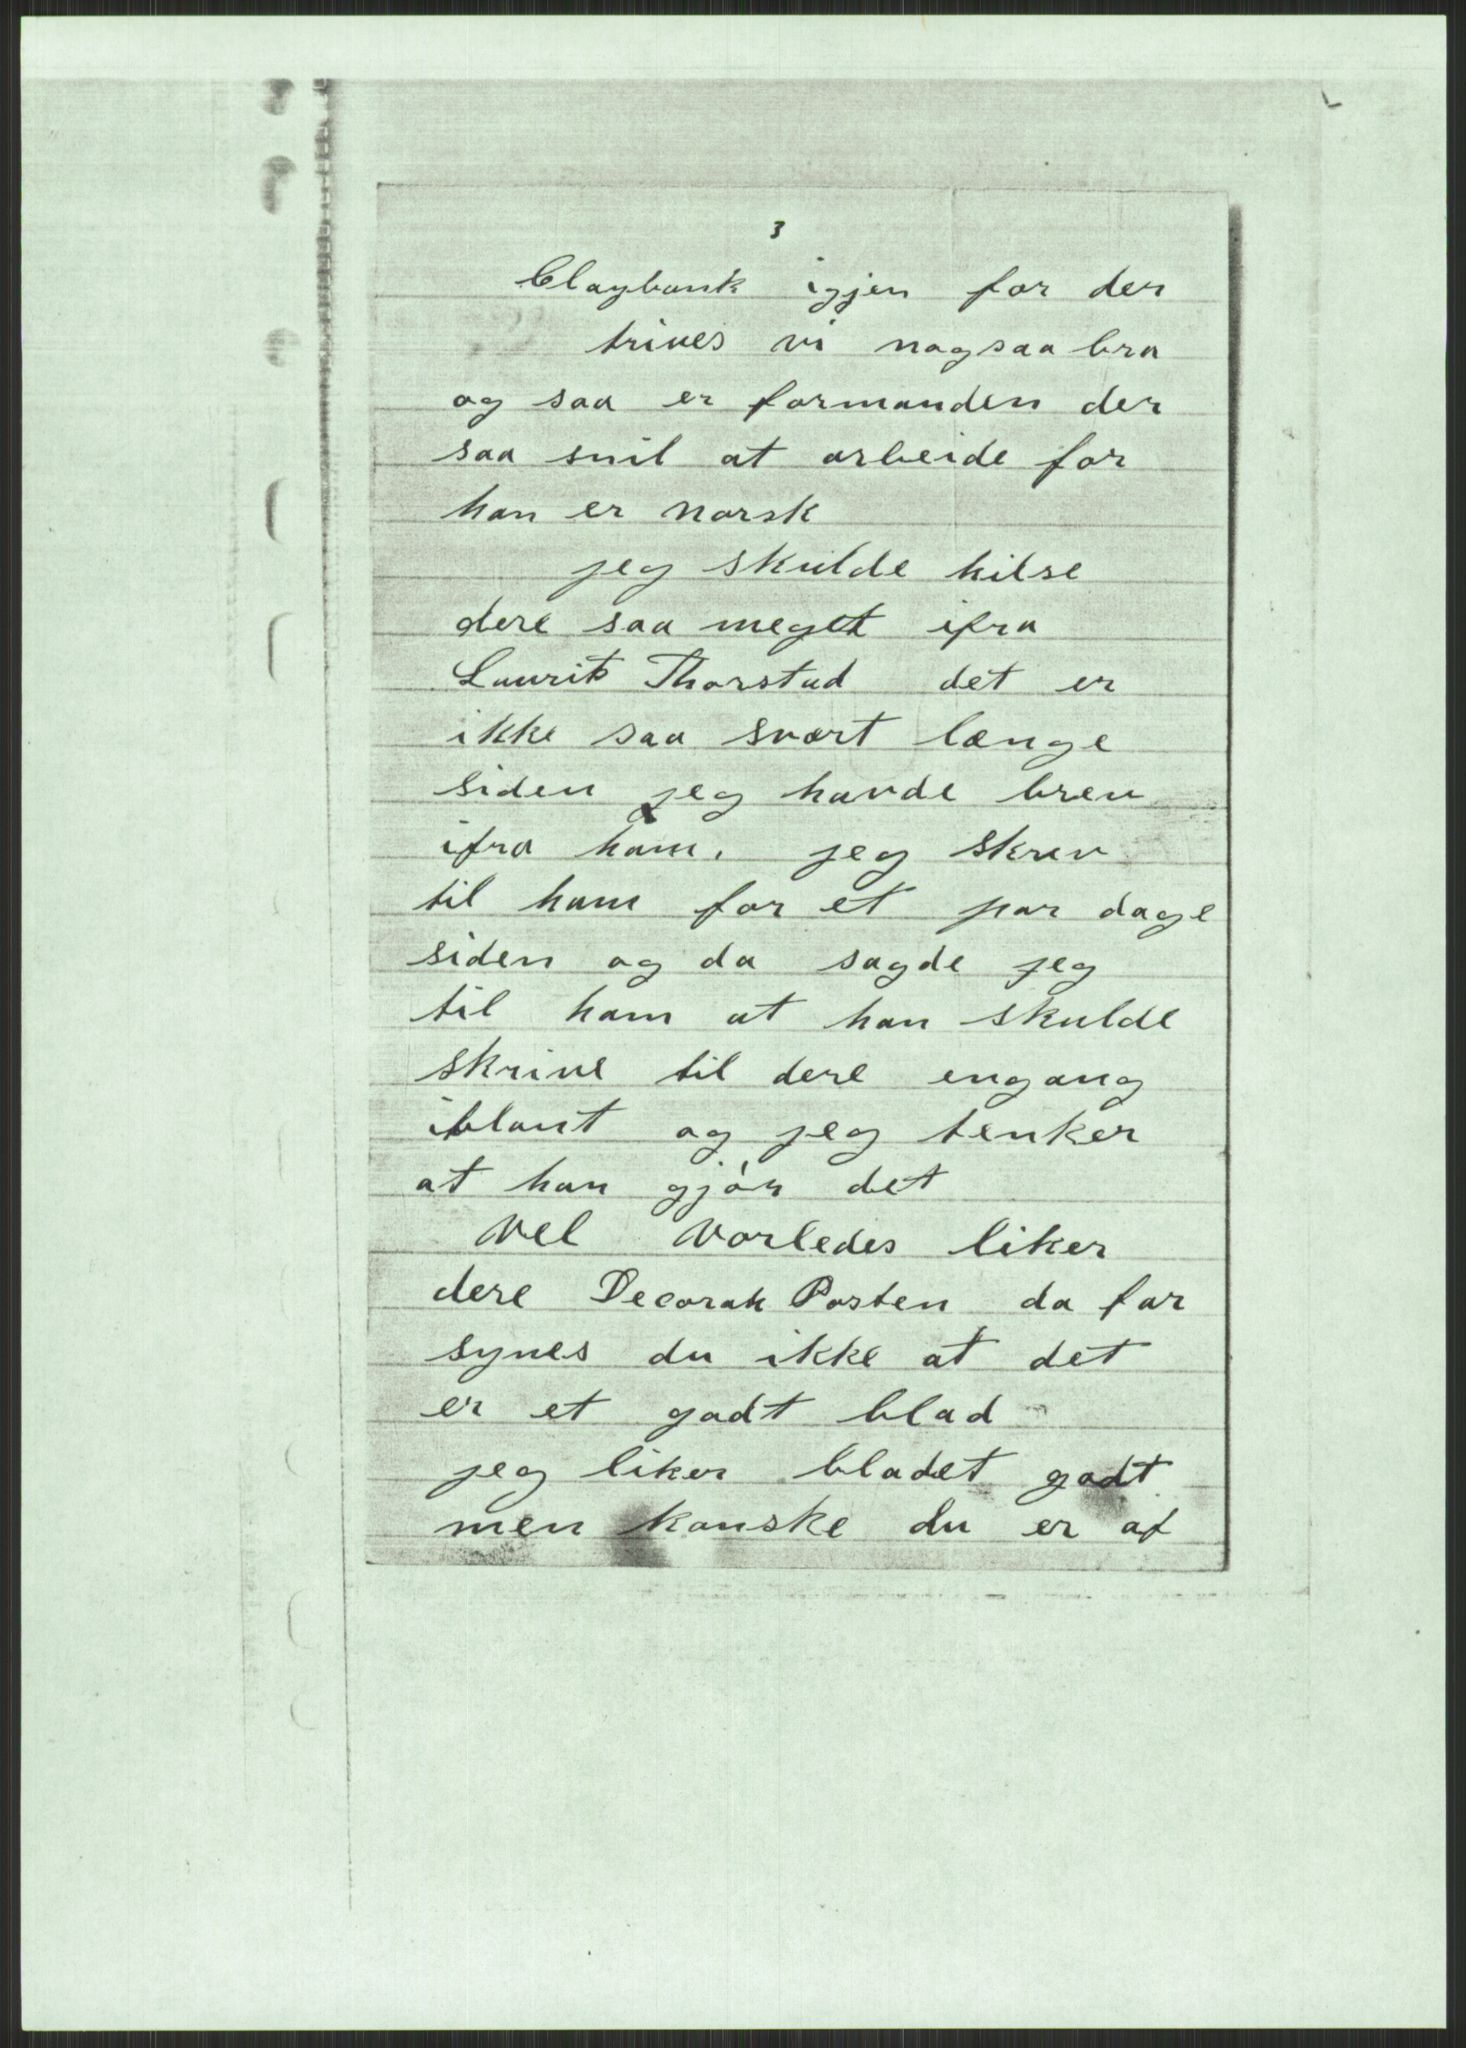 3
Claybank igjen for der
trives vi nogsaa bra
og saa er formanden der
saa snil at arbeide for
han er norsk
jeg skulde hilse
dere saa meget ifra
Laurits Thorstad det er
ikke saa svært længe
siden jeg havde brev
ifra ham. jeg skrev
til ham for et par dage
siden og da sagde jeg
til ham at han skulde
skrive til dere engang
iblant og jeg tenker
at han gjör det
Vel vorledes liker
dere Decorah Posten da far
synes du ikke at det
er et godt blad
jeg liker bladet godt
men kanske du er af